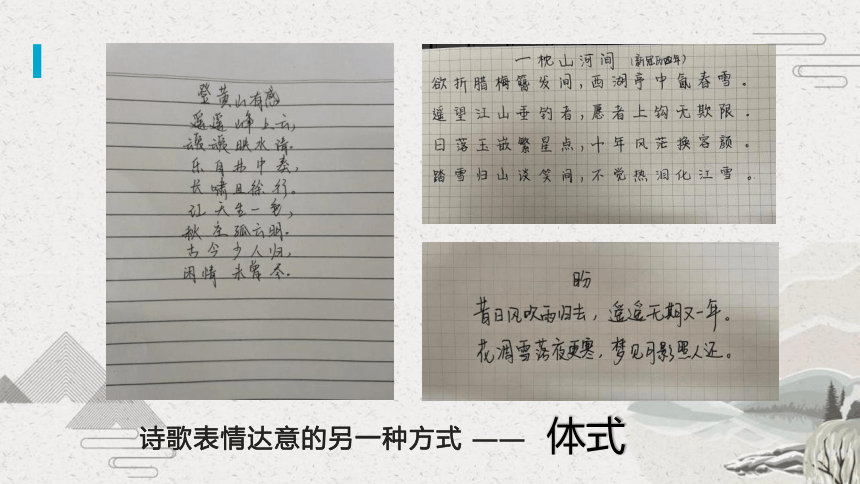 登黄山有感
遥遥峰上云，
映水清
乐自井中奏，
长啸且徐行。
让天生一色，
秋空孤云明。
古今少人归，
闲情未曾冬.
一枕山河间 （新冠历四年）
欲折腊梅簪发间，西湖亭中氤春雪。
遥望江山垂钓者，愿者上钩无欺限。
日落玉嵌繁星点，十年风茫换容颜。
踏雪归山谈笑间，不觉热泪化江雪。
盼
昔日风吹雨归去，遥遥无期又一年。
花凋雪落夜更寒，梦见月影照人还。
诗歌表情达意的另一种方式 —— 体式